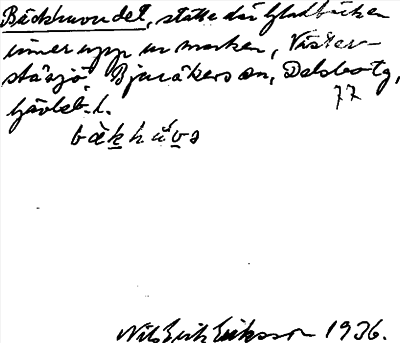 Bäckhuvudet, stätte där Gladbäcken
rinner upp ur marken, Väster-
stråsjö Bjuråkers sn, Delsbo tg,
77
Gävleb. l.
bä̀khúvə
Nils Erik Eriksson 1936.